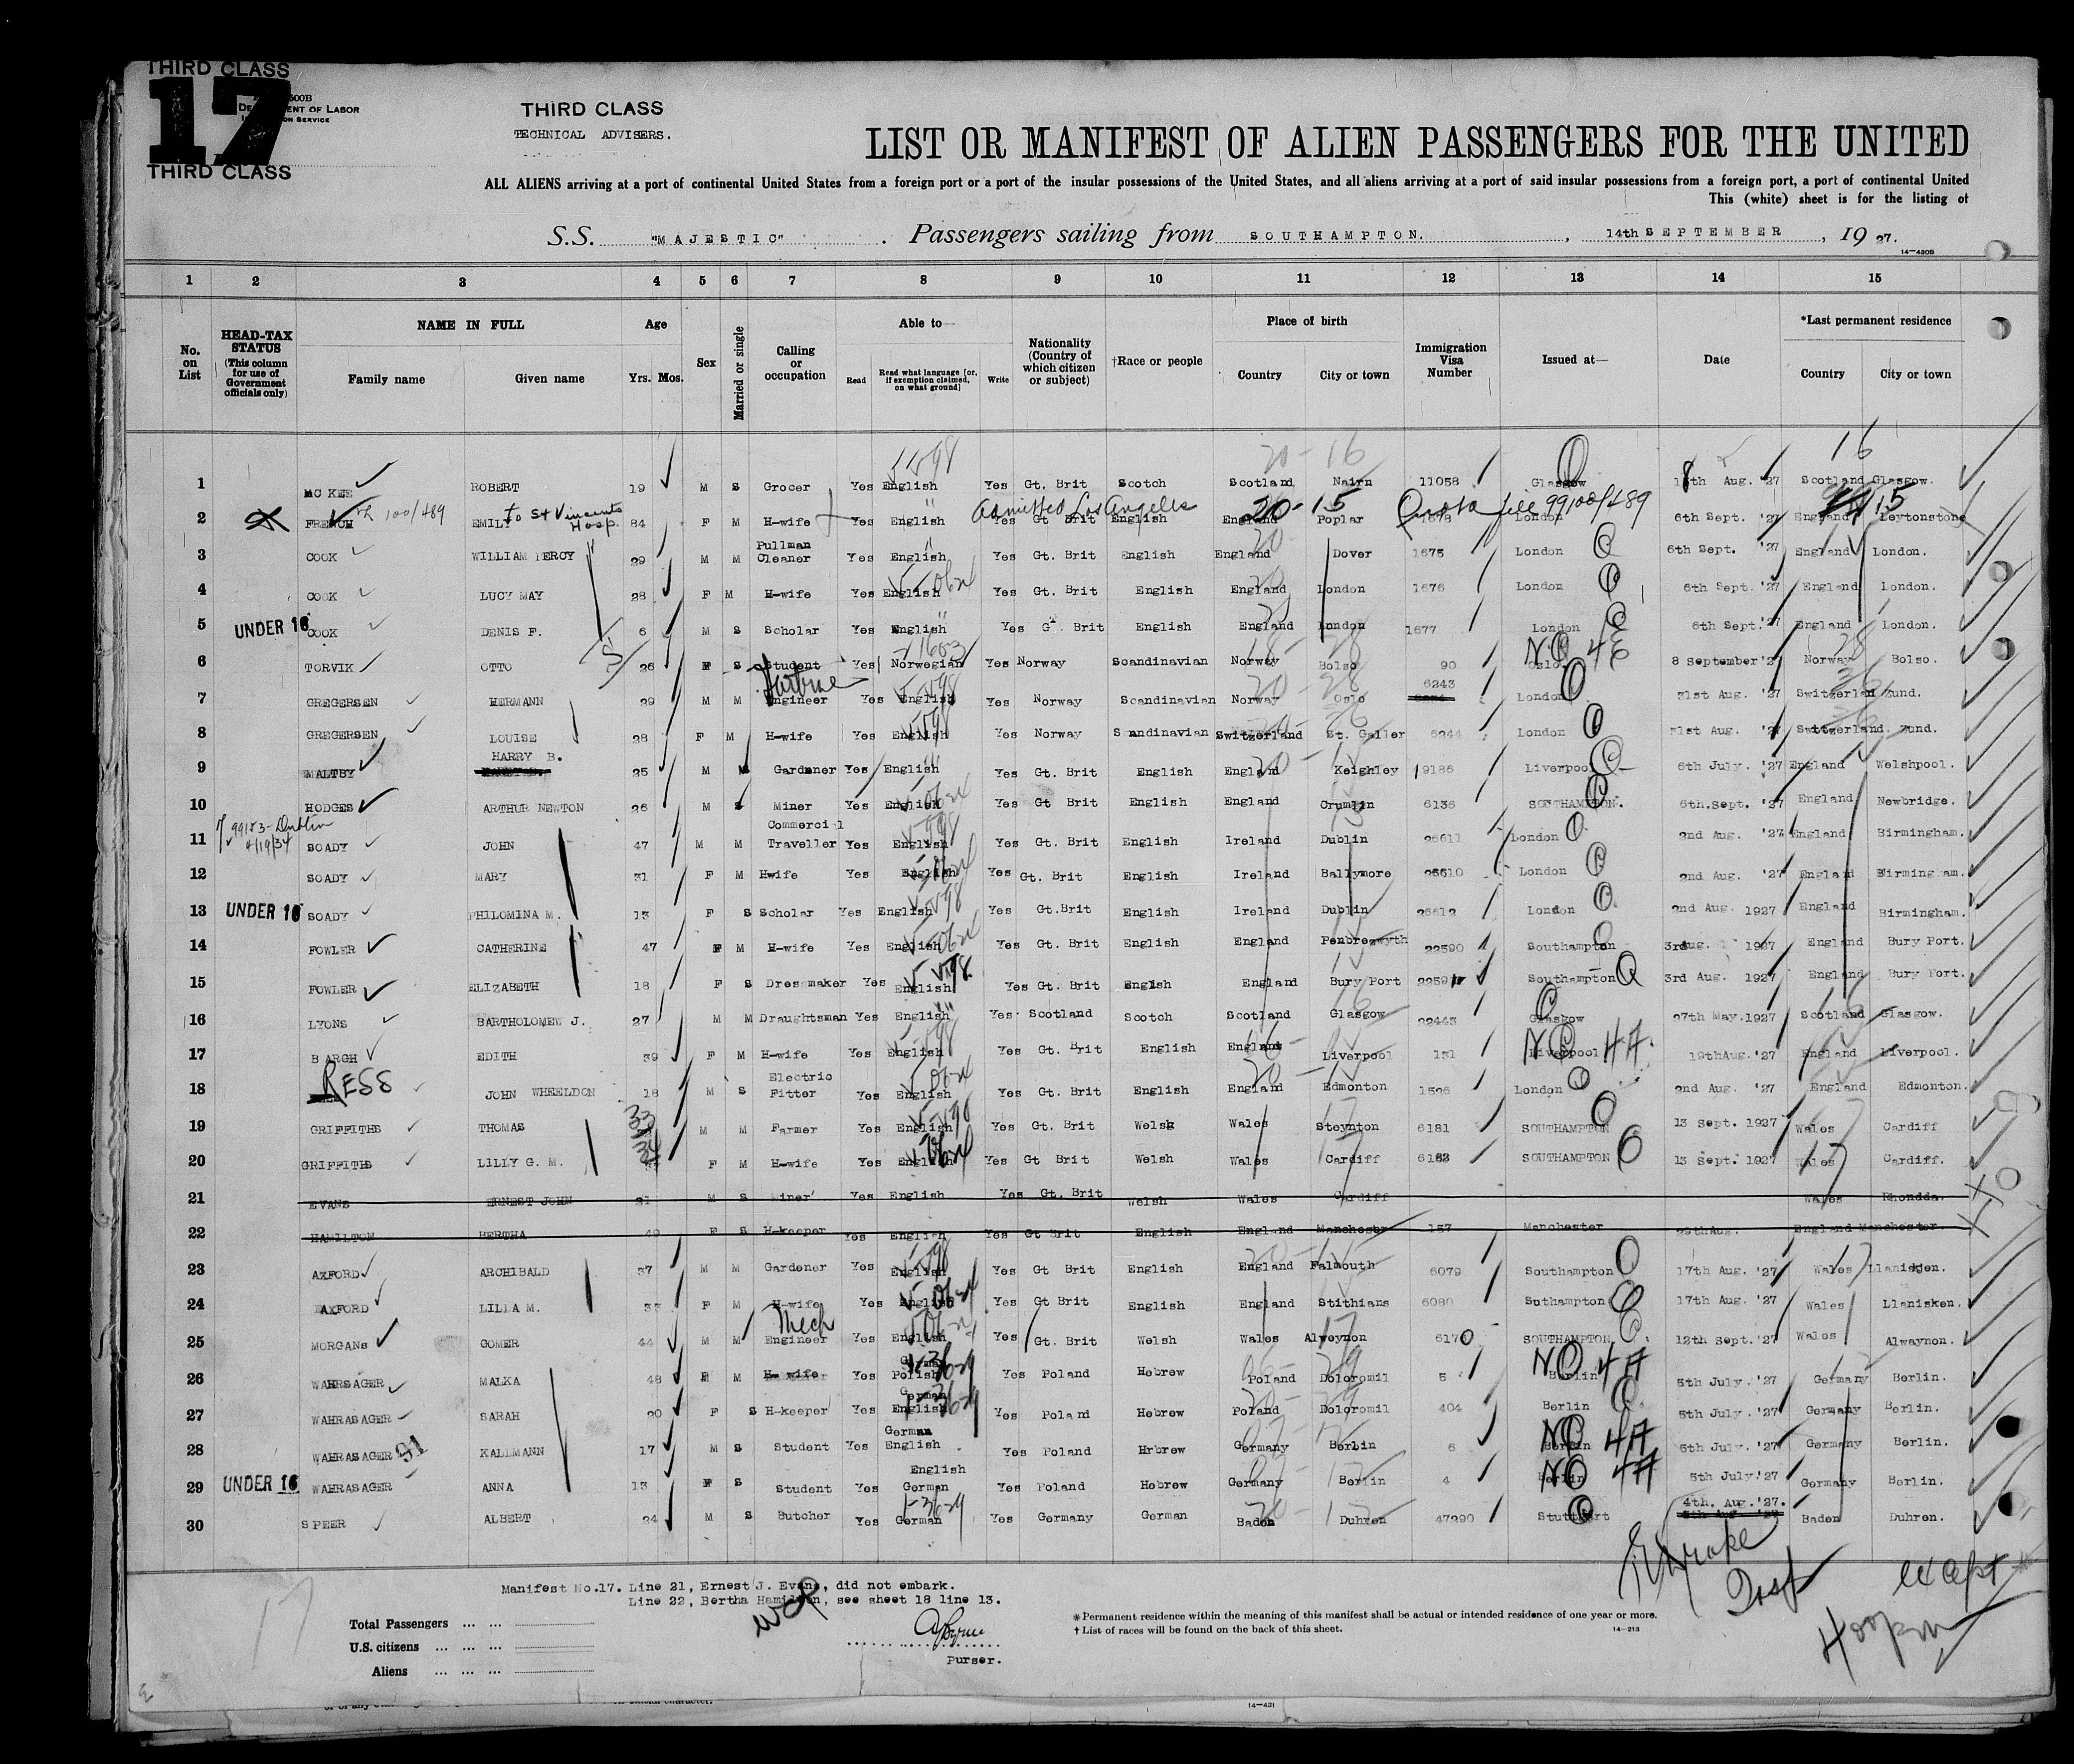 THIRD CLASS
17
500B
DEPARTMENT OF LABOR
IMMIGRATION SERVICE
THIRD CLASS
THIRD CLASS
TECHNICAL ADVISERS.
LIST OR MANIFEST OF ALIEN PASSENGERS FOR THE UNITED
ALL ALIENS arriving at a port of continental United States from a foreign port or a port of the insular possessions of the United States, and all aliens arriving at a port of said insular possessions from a foreign port, a port of continental United
This (white) sheet is for the listing of
S.S. "MAJESTIC" . Passengers sailing from SOUTHAMPTON. , 14th SEPTEMBER , 19 27.
14—430B
1 2 3 4 5 6 7 8 9 10 11 12 13 14 15
No. on List
HEAD-TAX STATUS (This column for use of Government officials only)
NAME IN FULL Family name Given name
Age Yrs. Mos.
Sex
Married or single
Calling or occupation
Able to— Read Read what language [or, if exemption claimed, on what ground] Write
Nationality (Country of which citizen or subject)
†Race or people
Place of birth Country City or town
Immigration Visa Number
Issued at—
Date
*Last permanent residence Country City or town
1 MC KEE ROBERT 19 M S Grocer Yes English Yes Gt. Brit Scotch Scotland Nairn 11058 Glasgow 18th Aug. '27 Scotland Glasgow.
2 FRENCH 100/489 EMILY to St Vincents Hosp. 84 F M H-wife Yes English Yes Gt Brit English England Poplar 1678 London 6th Sept. '27 England Leytonstone
Admitted Los Angeles 20-15 Quota file 99100/489 15
3 COOK WILLIAM PERCY 29 M M Pullman Cleaner Yes English Yes Gt. Brit English England Dover 1675 London 6th Sept. '27 England London.
4 COOK LUCY MAY 28 F M H-wife Yes English Yes Gt. Brit English England London 1676 London 6th Sept. '27 England London.
5 UNDER 16 COOK DENIS F. 6 M S Scholar Yes English Yes Gt. Brit English England London 1677 London 6th Sept. '27 England London.
6 TORVIK OTTO 26 S Student Yes Norwegian Yes Norway Scandinavian Norway Bolso 90 Oslo. NQ 4E 8 September '27 Norway Bolso.
7 GREGERSEN HERMANN 29 M M Engineer Yes English Yes Norway Scandinavian Norway Oslo 6243 London 31st Aug. '27 Switzerland Zund.
8 GREGERSEN LOUISE 28 F M H-wife Yes English Yes Norway Scandinavian Switzerland St. Galler 6244 London 31st Aug. '27 Switzerland. Zund.
9 MALTBY HARRY B. 25 M Gardener Yes English Yes Gt. Brit English England Keighley 19186 Liverpool 6th July. '27 England Welshpool.
10 HODGES ARTHUR NEWTON 26 M S Miner Yes English Yes Gt Brit English England Crumlin 6136 SOUTHAMPTON. 6th.Sept. '27 England Newbridge.
11 SOADY JOHN 47 M M Commercial Traveller Yes English Yes Gt. Brit English Ireland Dublin 26611 London 2nd Aug. '27 England Birmingham.
12 SOADY MARY 31 F M Hwife Yes English Yes Gt. Brit English Ireland Ballymore 26610 London 2nd Aug. '27 England Birmingham.
13 UNDER 16 SOADY PHILOMINA M. 13 F S Scholar Yes English Yes Gt.Brit English Ireland Dublin 26612 London 2nd Aug. 1927 England Birmingham.
14 FOWLER CATHERINE 47 F M H-wife Yes English Yes Gt. Brit English England Penbreswyth 22590 Southampton 3rd Aug. 1927 England Bury Port.
15 FOWLER ELIZABETH 18 F S Dressmaker Yes English Yes Gt. Brit English England Bury Port Southampton 3rd Aug. 1927 England Bury Port.
16 LYONS BARTHOLOMEW J. 27 M M Draughtsman Yes English Yes Scotland Scotch Scotland Glasgow 22443 Glasgow 27th May.1927 Scotland Glasgow.
17 BARGH EDITH 39 F M H-wife Yes English Yes Gt. Brit English England Liverpool 131 Liverpool NQ 4A. 19thAug.'27 England Liverpool.
18 RESS JOHN WHEELDON 18 M S Electric Fitter Yes English Yes Gt. Brit English England Edmonton 1596 London 2nd Aug. '27 England Edmonton.
19 GRIFFITHS THOMAS 33 M M Farmer Yes English Yes Gt. Brit Welsh Wales Steynton 6181 SOUTHAMPTON 13 Sept. 1927 Wales Cardiff
20 GRIFFITHS LILLY G. M. F M H-wife Yes English Yes Gt Brit Welsh Wales Cardiff 6182 SOUTHAMPTON 13 Sept. 1927 Wales Cardiff.
21 EVANS ERNEST JOHN 21 M S Miner Yes English Yes Gt. Brit Welsh Wales Cardiff Wales Rhondda.
22 HAMILTON BERTHA 49 F S H-keeper Yes English Yes Gt Brit English England Manchester 157 Manchester 29thAug. England Manchester
23 AXFORD ARCHIBALD 37 M M Gardener Yes English Yes Gt Brit English England Falmouth 6079 Southampton 17th Aug. '27 Wales Llanisken.
24 AXFORD LILLA M. 33 F M H-wife Yes English Yes Gt Brit English England Stithians 6080 Suthampton 17th Aug. '27 Wales Llanisken.
25 MORGANS GOMER 44 M M Mech Engineer Yes English Yes Gt. Brit Welsh Wales Alweynon 6170 SOUTHAMPTON 12th Sept.'27 Wales Alwaynon.
26 WAHRSAGER MALKA 48 F M H-wife Yes German Polish Yes Poland Hebrew Poland Doloromil 5 Berlin NQ 4A 5th July.'27 Germany Berlin.
27 WAHRASAGER SARAH 20 F S H-keeper Yes German English Yes Poland Hebrew Poland Doloromil 404 Berlin 5th July.'27 Germany Berlin.
28 WAHRASAGER KALLMANN 17 M S Student Yes German English Yes Poland Hrbrew Germany Berlin 6 Berlin NQ 4A 5th July.'27 Germany Berlin.
29 UNDER 16 WAHRASAGER ANNA 13 F S Student Yes English German Yes Poland Hebrew Germany Berlin 4 Berlin NQ 4A 5th July.'27 Germany Berlin.
30 SPEER ALBERT 24 M S Butcher Yes German Yes Germany German Baden Duhren 47290 Stuttgart 4th. Aug.'27. Baden Duhren.
Manifest No.17. Line 21, Ernest J. Evans, did not embark.
Line 22, Bertha Hamilton, see sheet 18 line 13.
Total Passengers ... ...
U.S. citizens ... ... ...
Aliens ... ... ...
Purser.
*Permanent residence within the meaning of this manifest shall be actual or intended residence of one year or more.
†List of races will be found on the back of this sheet.
14—213
except
17
14—431